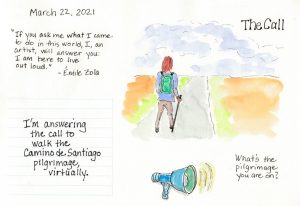 March 22, 2021
"If you ask me what I came
to do in this world, I, an
artist, will answer you:
I am here to live
out loud."
- Émile Zola
I'm answering
the call to
walk the
Camino de Santiago
pilgrimage,
virtually.
The Call
What's the
pilgrimage
you are on?